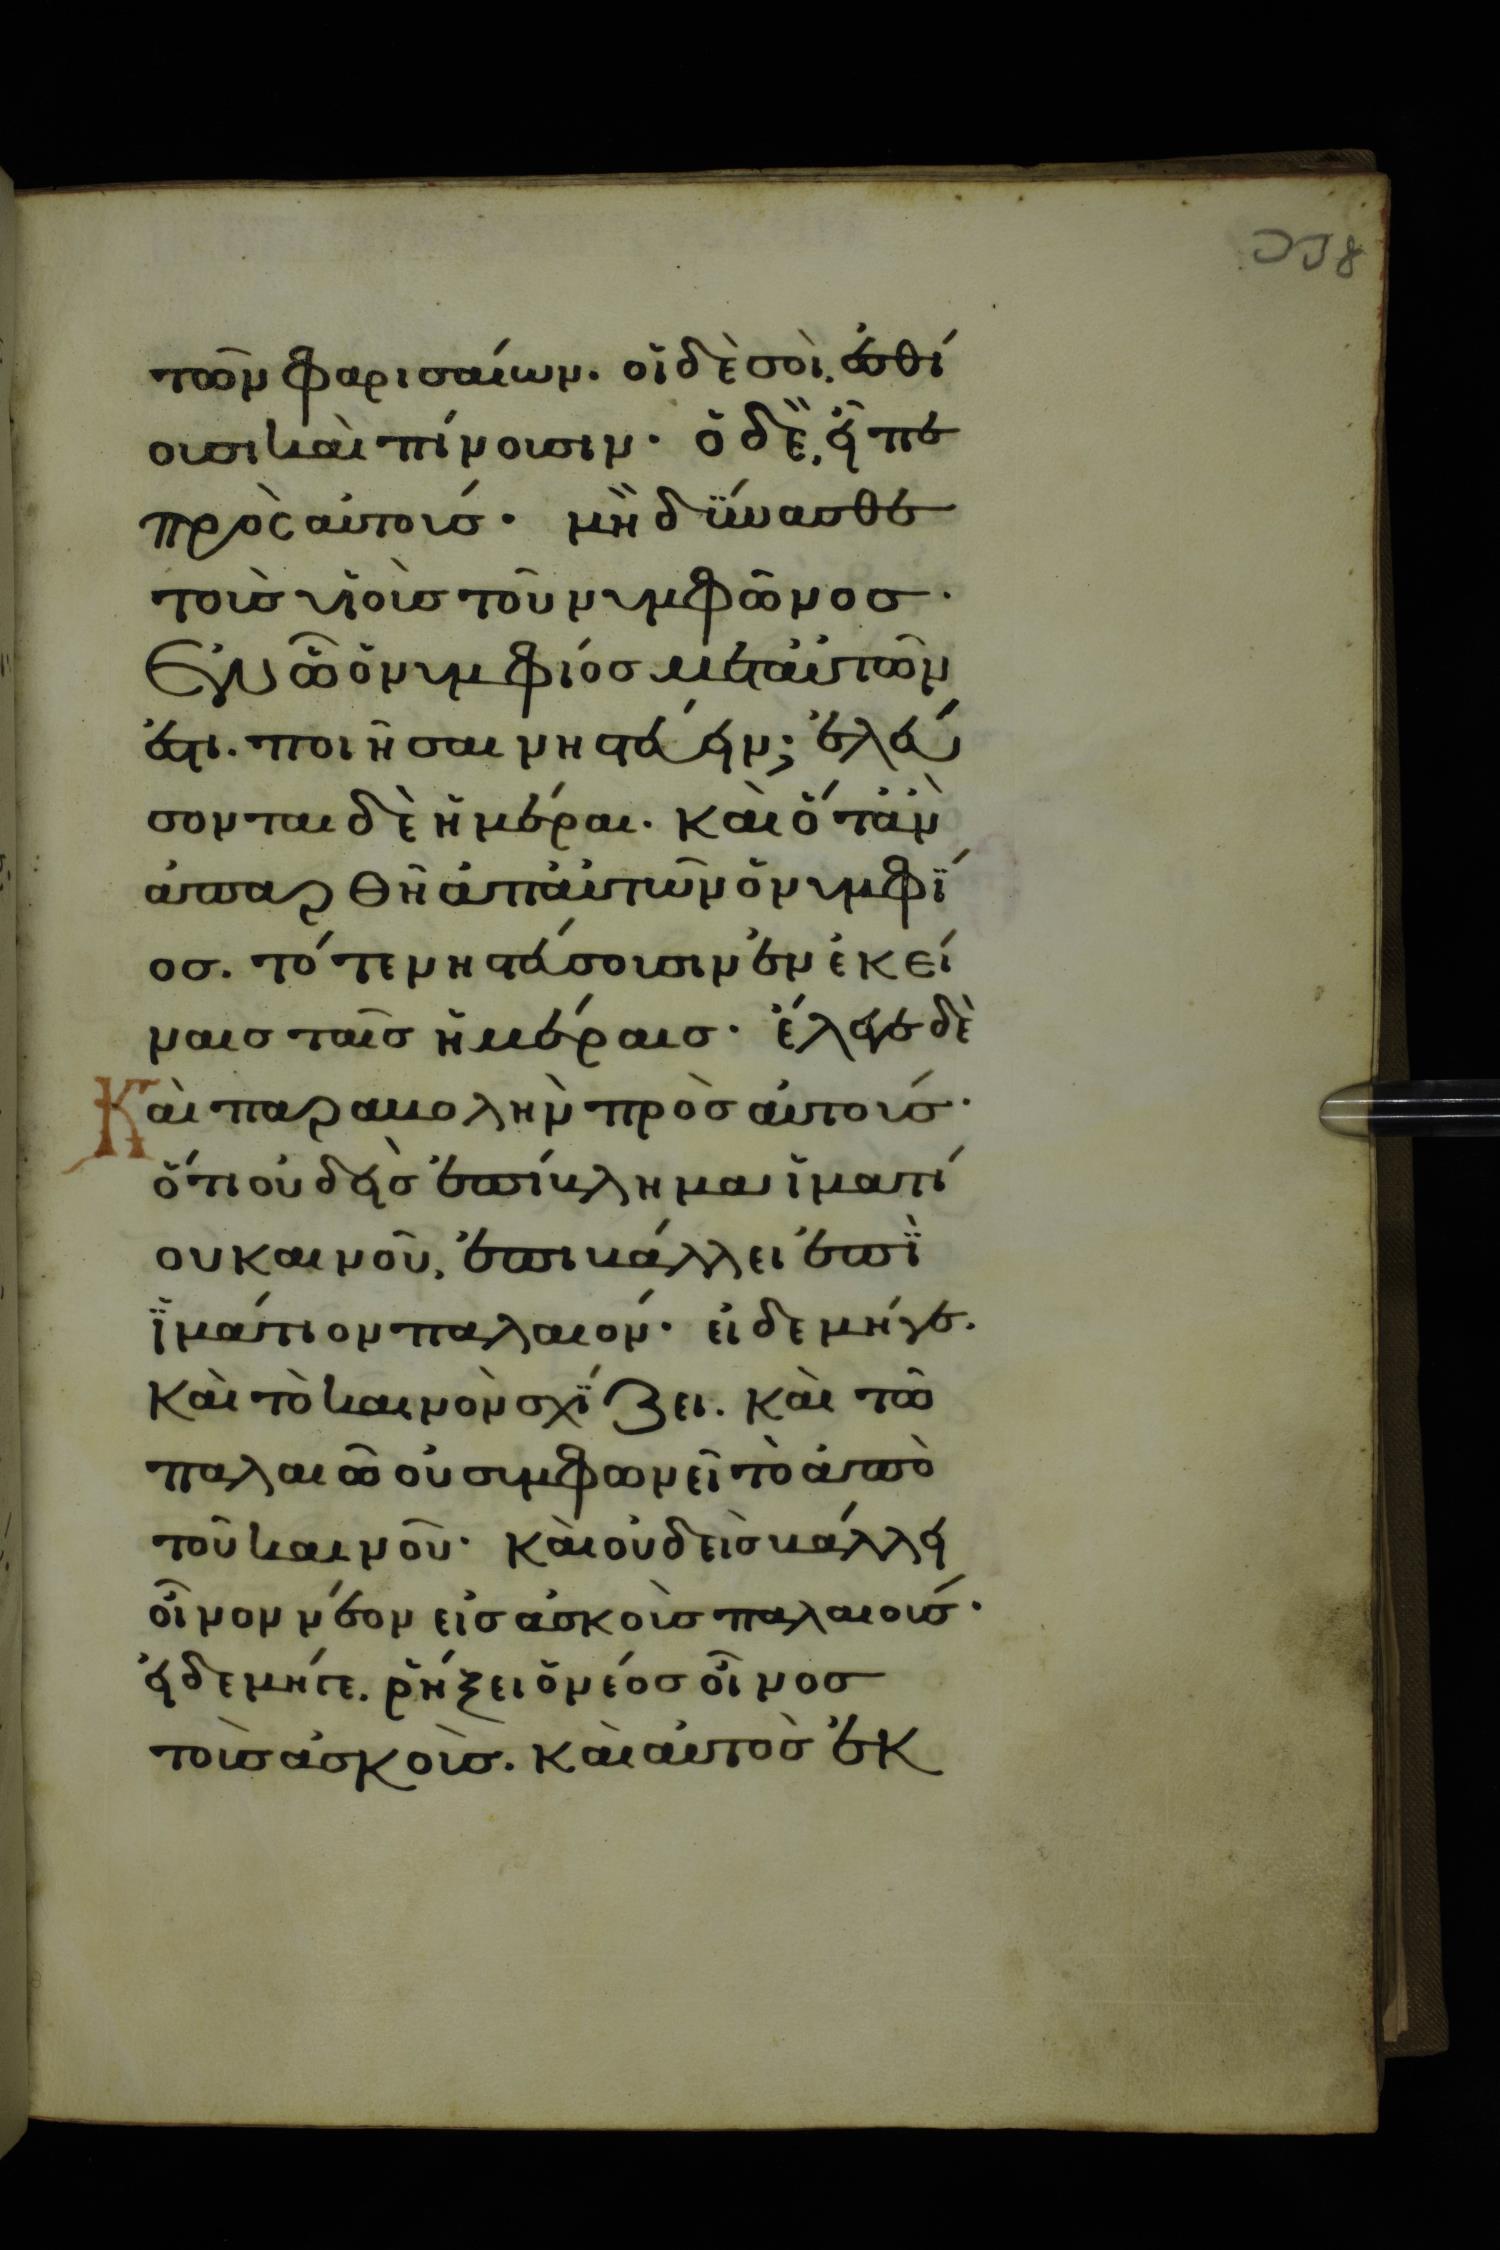 τῶν φαρισαίων. οἱ δὲ σοὶ, ἐσθί
ουσι καὶ πίνουσιν· ὁ δὲ, εἶπε
πρὸς αὐτούς· μὴ δύνασθε
τοὺς υἱοὺς τοῦ νυμφῶνος·
Ἐν ῶ ὁ νυμφίος μετ αὐτῶν
ἐστι. ποιῆσαι νηστεύειν; ἐλεύ
σονται δὲ ἡμέραι. καὶ ὅταν
ἀπαρθῆ ἀπ αὐτῶν ὁ νυμφί
ος. τότε νηστεύσουσιν ἐν ἐκεί
ναις ταῖς ἡμέραις· ἔλεγε δὲ
Καὶ παραβολὴν πρὸς αὐτούς·
ὅτι οὐδεὶς ἐπίβλημα ἱματί
ου καινοῦ, ἐπιβάλλει ἐπῒ
ἱμάτιον παλαιόν· εἰ δε μήγε.
Καὶ τὸ καινὸν σχΐζει. καὶ τῶ
παλαιῶ οὐ συμφωνεῖ τὸ ἀπὸ
τοῦ καινοῦ· καὶ οὐδεὶς βάλλει
οἶνον νέον εἰς ἀσκοὺς παλαιούς·
εἰ δε μήγε. ῥήξει ὁ νέος οἶνος
τοὺς ἀσκοὺς. καὶ αὐτὸς ἐκ